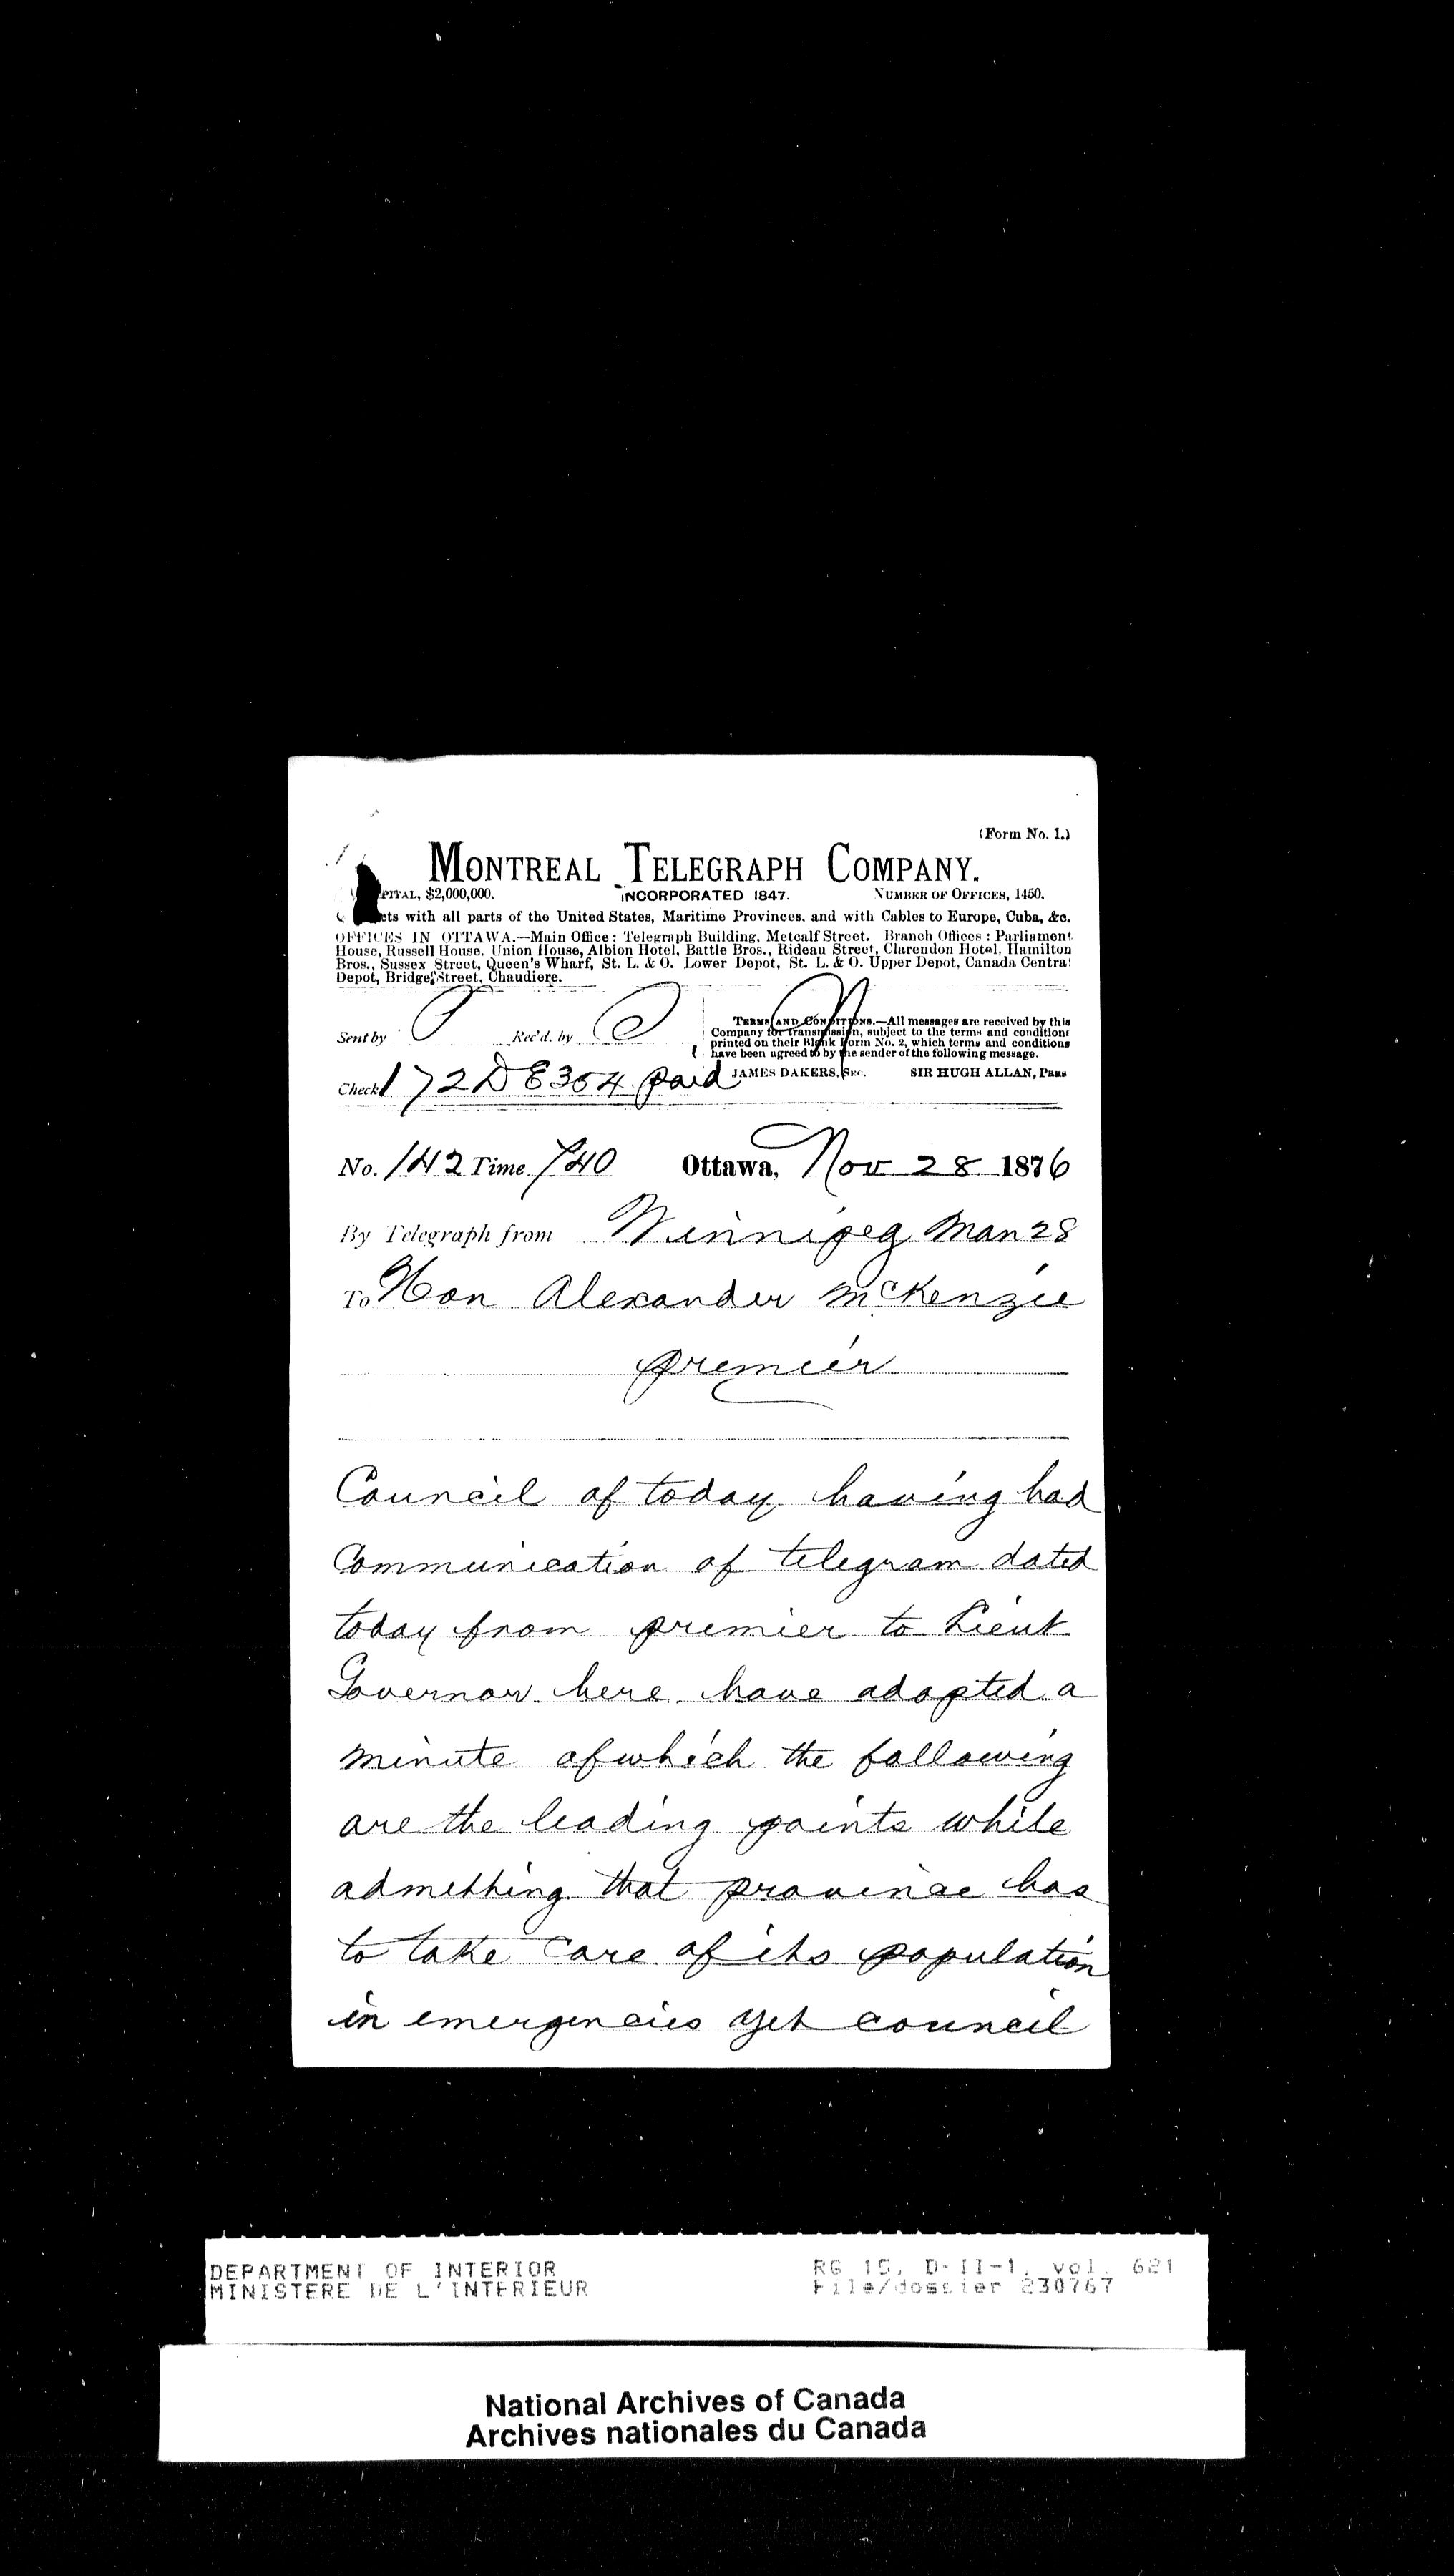 (Form No. 1.)
MONTREAL TELEGRAPH COMPANY.
PITAL, $2,000,000. INCORPORATED 1847. NUMBER OF OFFICES, 1450.
cts with all parts of the United States, Maritime Provinces, and with Cables to Europe, Cuba, &c.
OFFICES IN OTTAWA.—Main Office: Telegraph Building, Metcalf Street. Branch Offices: Parliament
House, Russell House. Union House, Albion Hotel, Battle Bros., Rideau Street, Clarendon Hotel, Hamilton
Bros., Sussex Street, Queen's Wharf, St. L. & O. Lower Depot, St. L. & O. Upper Depot, Canada Central
Depot, Bridge Street, Chaudiere.
Sent by Rec'd. by
TERMS AND CONDITIONS.—All messages are received by this
Company for transmission, subject to the terms and conditions
printed on their Blank Form No. 2, which terms and conditions
have been agreed to by the sender of the following message.
JAMES DAKERS, SEC. SIR HUGH ALLAN, PRES
Check 172 DE 354 paid
No. 142 Time 740 Ottawa, Nov 28 1876
By Telegraph from Winnipeg Man 28
To Hon Alexander McKenzie
premier
Council of today having had
Communication of telegram dated
today from premier to Lieut
Governor here have adopted a
minute of which the following
are the leading points while
admetting that province has
to take care of its population
in emergencies yet council
DEPARTMENT OF INTERIOR RG 15, D-II-1, vol. 621
MINISTERE DE L'INTERIEUR File/dossier 230767
National Archives of Canada
Archives nationales du Canada